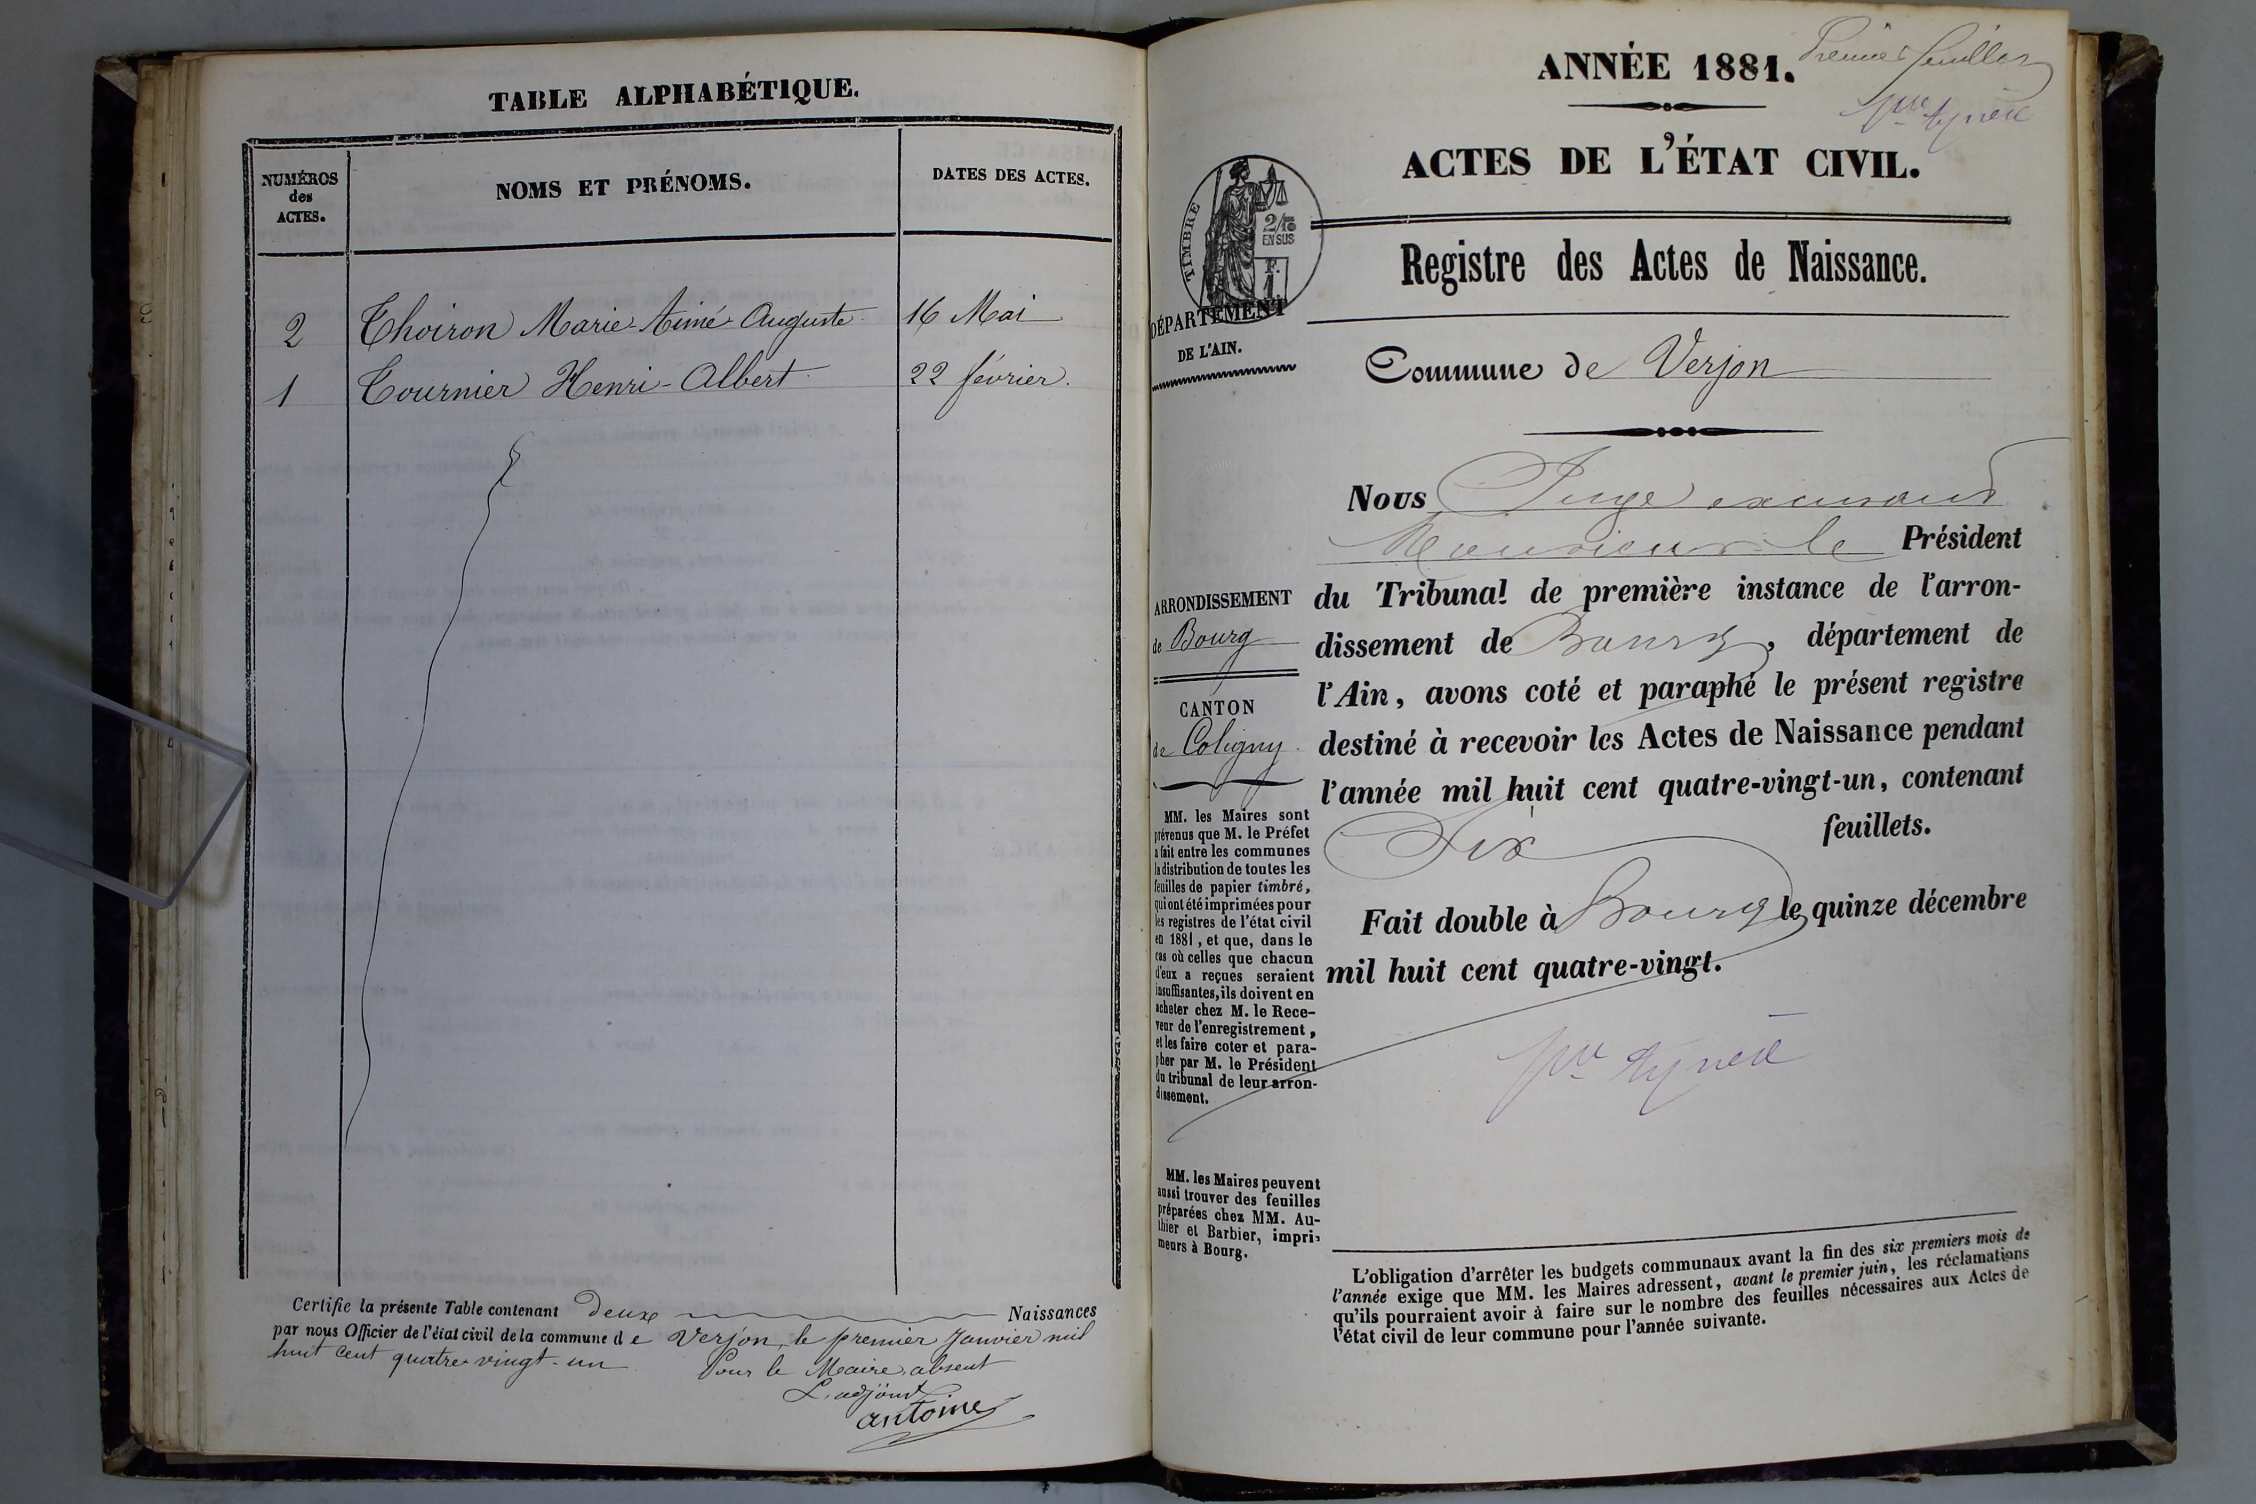 TABLE ALPHABÉTIQUE.
NUMÉROS
des
ACTES.
NOMS ET PRÉNOMS.
DATES DES ACTES.
2 Thoiron Marie-Aimé Auguste 16 Mai
1 Tournier Henri-Albert 22 février.
Certifie la présente Table contenant deux Naissances
par nous Officier de l'état civil de la commune de Verjon, le premier Janvier mil
huit cent quatre-vingt-un
Pour le Maire absent
L'adjoint
antoine
Premier feuillet
ANNÉE 1881.
ACTES DE L'ÉTAT CIVIL.
TIMBRE
2/10
EN SUS
F.
1
Registre des Actes de Naissance.
DÉPARTEMENT
DE L'AIN.
Commune de Verjon
Nous Juge
Monsieur le Président
du Tribunal de première instance de l'arron-
dissement de Bourg, département de
l'Ain, avons coté et paraphé le présent registre
destiné à recevoir les Actes de Naissance pendant
l'année mil huit cent quatre-vingt-un, contenant
Six feuillets.
Fait double à Bourg le quinze décembre
mil huit cent quatre-vingt.
ARRONDISSEMENT
de Bourg
CANTON
de Coligny
MM. les Maires sont
prévenus que M. le Préfet
a fait entre les communes
la distribution de toutes les
feuilles de papier timbré,
qui ont été imprimées pour
les registres de l'état civil
en 1881, et que, dans le
cas où celles que chacun
d'eux a reçues seraient
insuffisantes, ils doivent en
acheter chez M. le Rece-
veur de l'enregistrement,
et les faire coter et para-
pher par M. le Président
du tribunal de leur arron-
dissement.
MM. les Maires peuvent
aussi trouver des feuilles
préparées chez MM. Au-
thier et Barbier, impri-
meurs à Bourg.
L'obligation d'arrêter les budgets communaux avant la fin des six premiers mois de
l'année exige que MM. les Maires adressent, avant le premier juin, les réclamations
qu'ils pourraient avoir à faire sur le nombre des feuilles nécessaires aux Actes de
l'état civil de leur commune pour l'année suivante.